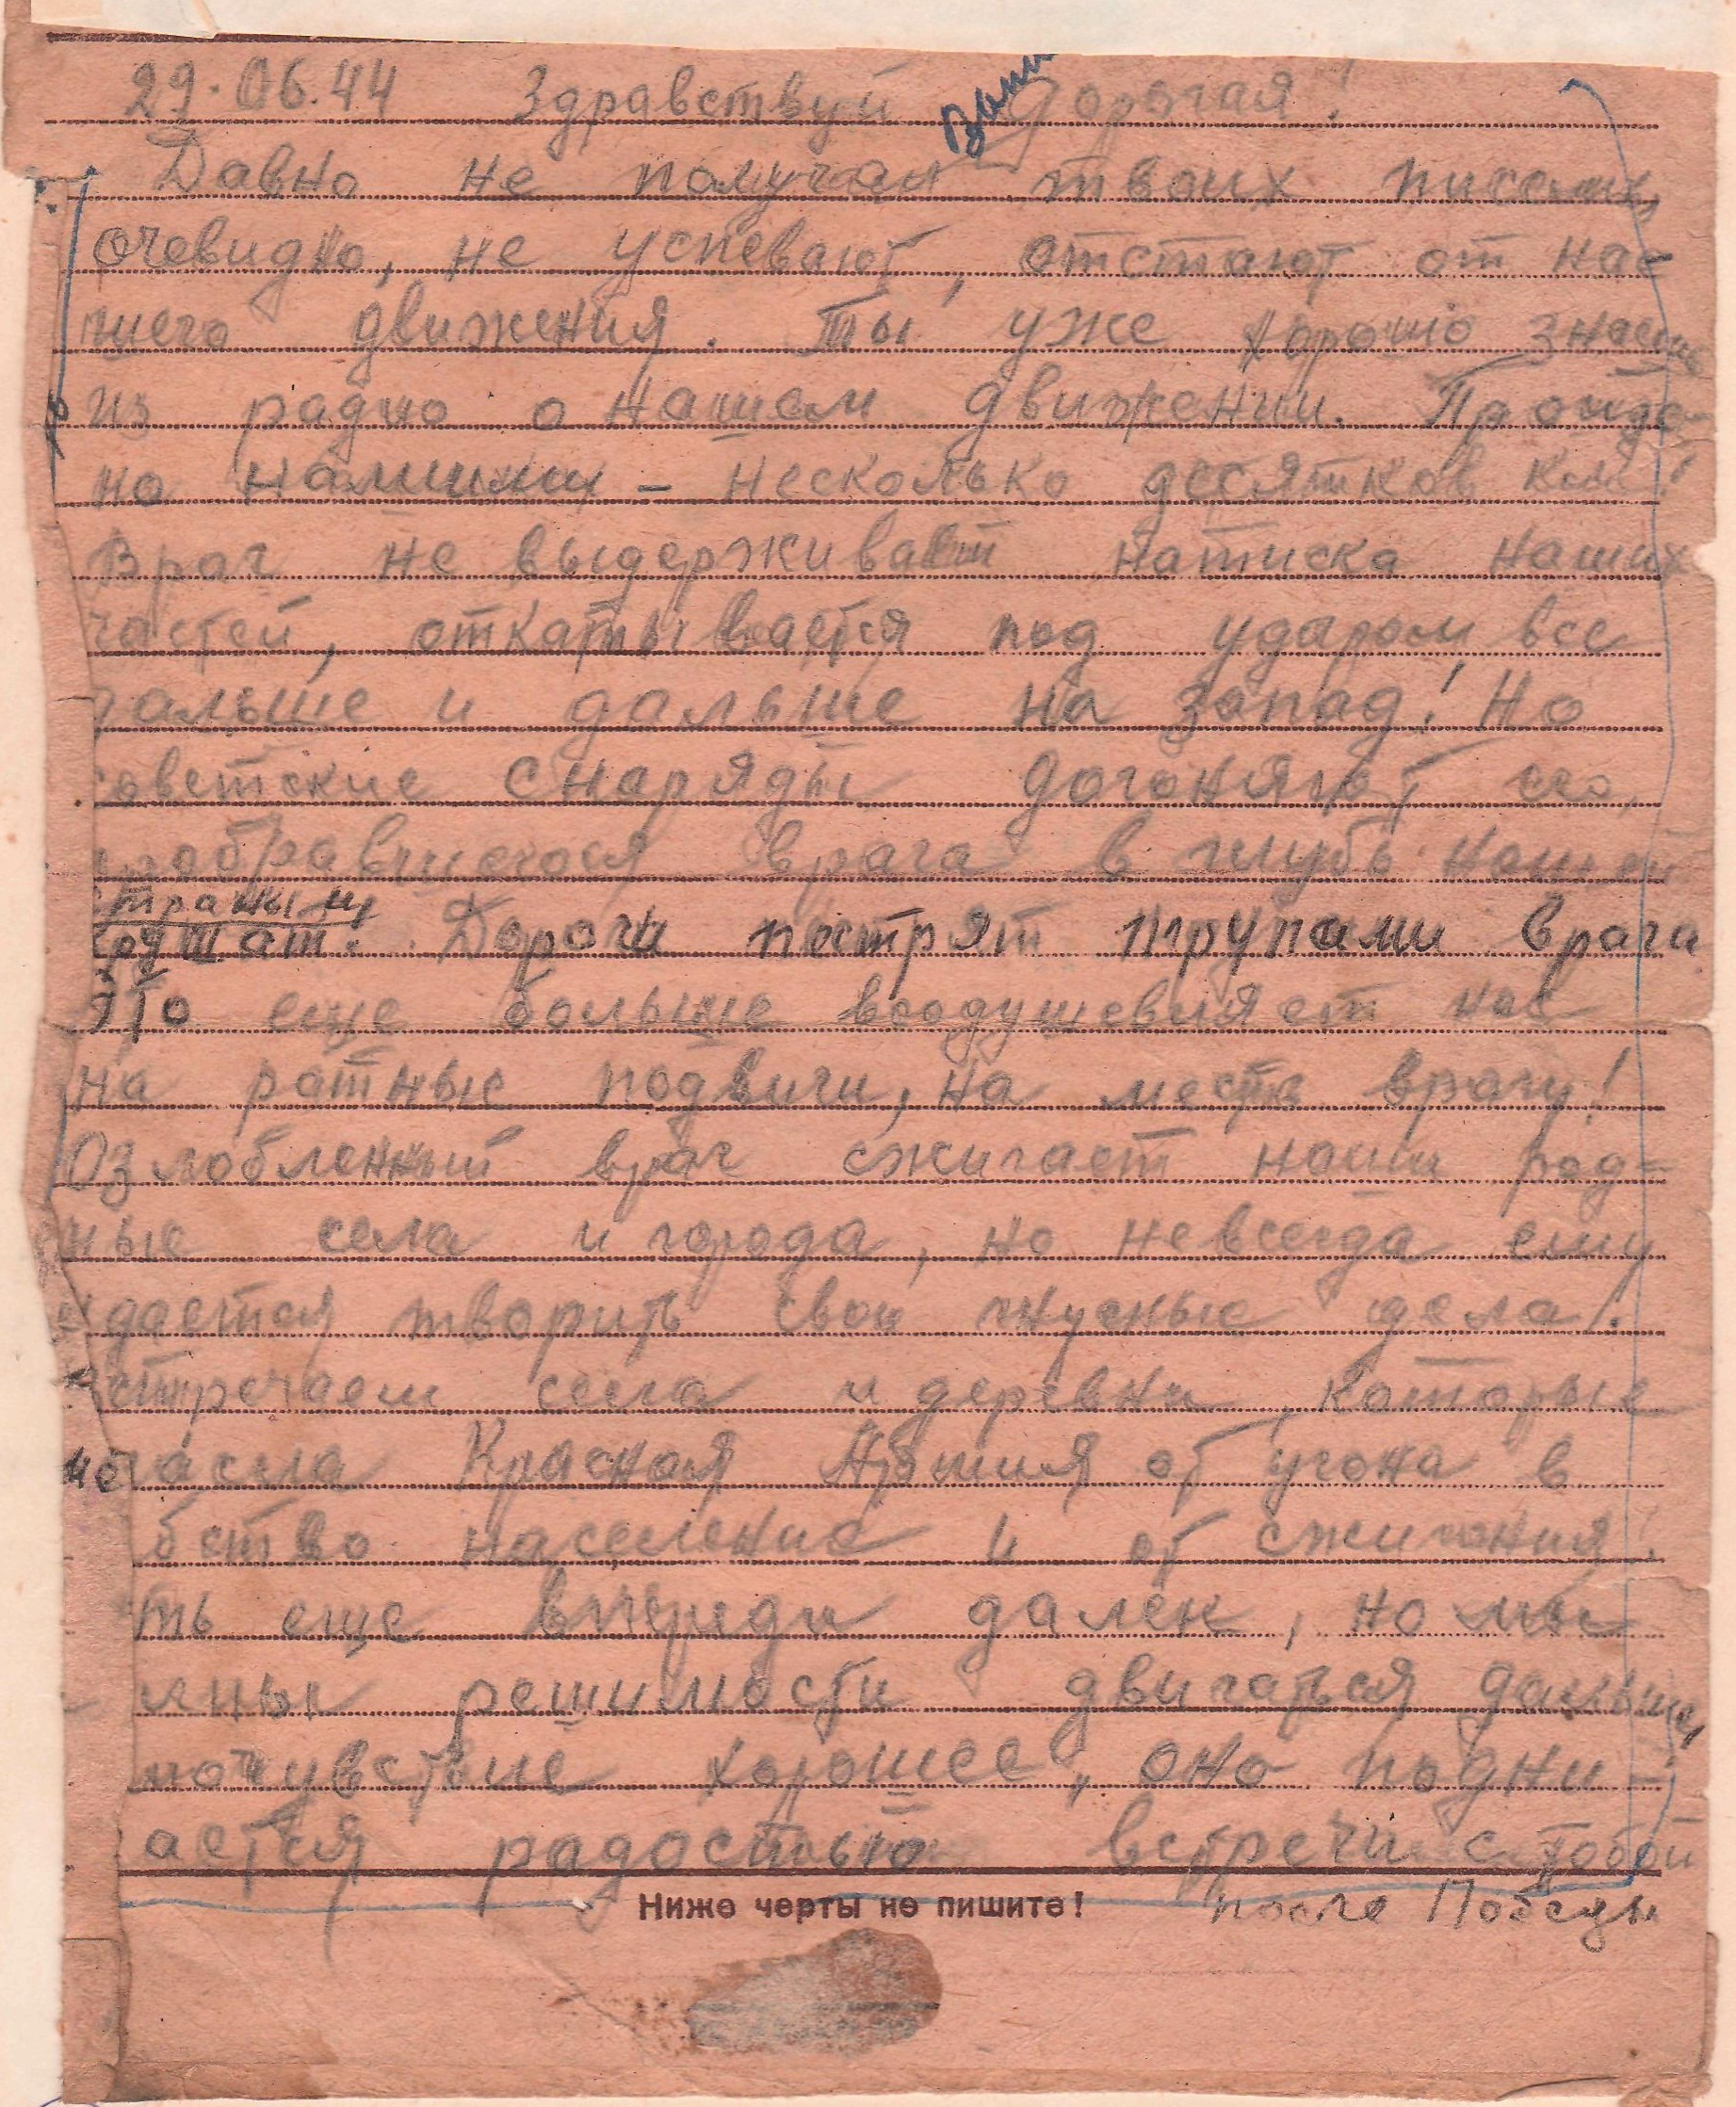 29.06.44 Здравствуй Дорогая!
Давно не получал твоих писем,
очевидно, не успевают, отстают от на-
шего движения. Ты уже хорошо знаешь
из радио о нашем движении. Пройде-
но нашими – несколько десятков км!
Враг не выдерживает натиска наших
частей, откатывается под ударом все
дальше и дальше на запад! Но
советские снаряды догоняют его,
забравшегося врага в глубь нашей
страны и
Дороги пестрят трупами врага
Это еще больше воодушевляет нас
на ратные подвиги, на месть врагу!
Озлобленный враг сжигает наши род-
ные села и города, но не всегда ему
удается творить свои гнусные дела!
Встречаем села и деревни, которые
спасла Красная Армия от угона в
бство население и от сжигания!
ть еще впереди далек, но мы
лны решимости двигаться дальше,
мочувствие хорошее, оно подни-
ается радостью встречи с тобой
Ниже черты не пишите!
после Победы